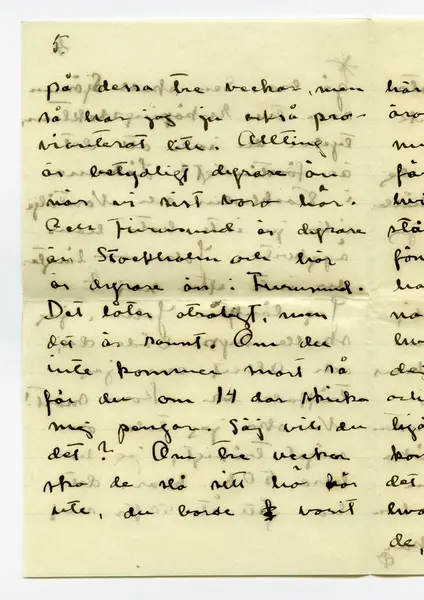 5.
på dessa tre veckor, men
så har jag ju också pro-
vianterat lite. Allting
är betydligt dyrare än
när vi sist voro här.
Och Furusund är dyrare
än Stockholm och här
är dyrare än i Furusund.
Det låter otroligt, men
det är sannt. Om du
inte kommer snart så
får du om 14 dar skicka
mig pengar. Säj vill du
det? Om tre veckor
ska de slå sitt hö här
ute, du borde varit
här
äro
få
stå
för
ha
na
hva
dej
och
kor
det
hva
de,